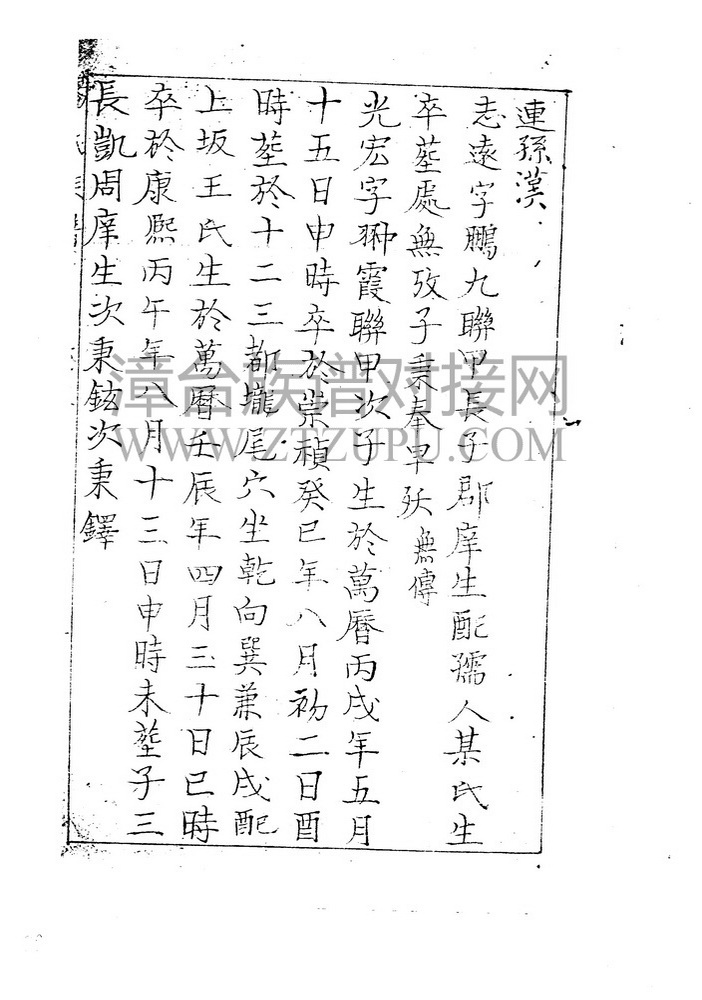 連孫漢
志遠字鵬九聯甲長子郡庠生配孺人某氏生
卒塟處無攷子秉奉早殀無傳
光宏字翀霞聯甲次子生於萬曆丙戌年五月
十五日申時卒於崇禎癸巳年八月初二日酉
時塟於十二三都壠尾穴坐乾向巽兼辰戌配
上坂王氏生於萬曆壬辰年四月三十日巳時
卒於康熈丙午年八月十三日申時未塟子三
長凱周庠生次秉鉉次秉鐸
漳台族谱对接网
WWW.ZTZUPU.COM